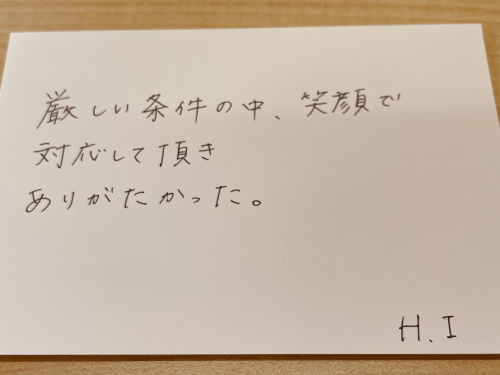 厳しい条件の中、笑顔で
対応して頂き
ありがたかった。
H.I